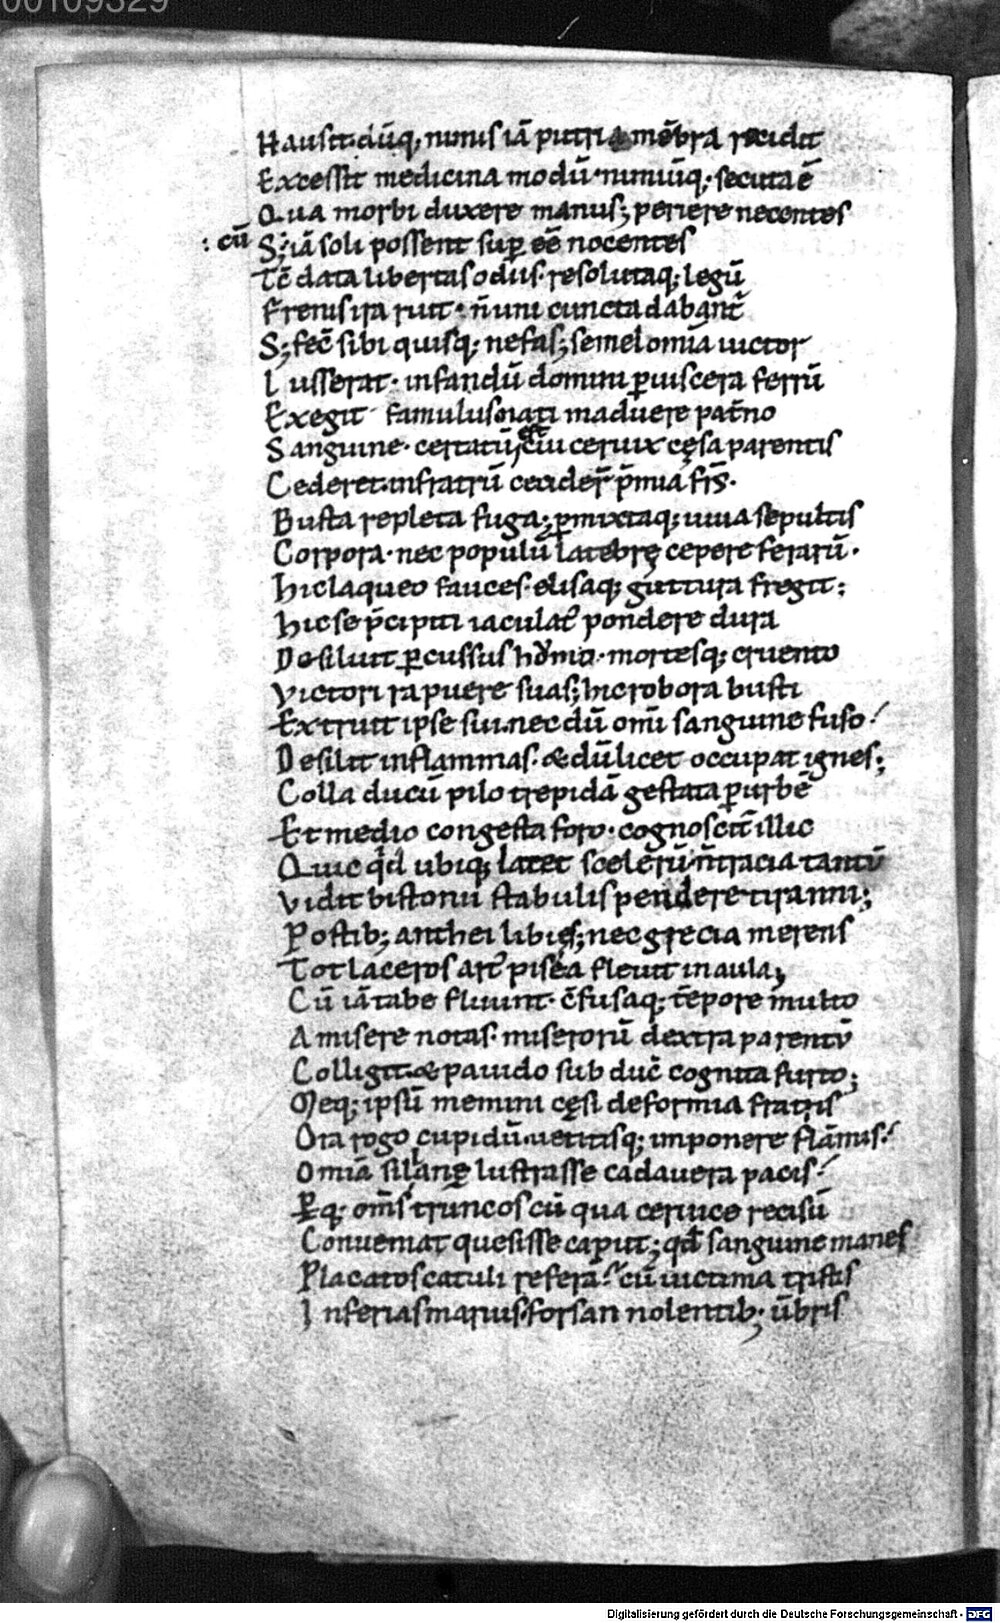 00109329
Hausit dūq; nimis iā putria mēbra recidit
Excessit medicina modū· nimiūq; secuta ē
Qua morbi duxere manus; periere nocentes
: cū S; iā soli possent sup eē nocentes
Tc̄ data libertas odiis· resolutaq; legū
Frenis ira ruit· n̄ uni cuncta dabant᷑
S; fec̄ sibi quisq; nefas; semel omīa uictor
Iusserat· infandū domini p uiscera ferrū
Exegit famulus nati maduere pat̄no
Sanguine· certatū est cui ceruix cęsa parentis
Cederet· in fratrū cecider̄ p̄mia fr̄s·
Busta repleta fuga; pmixtaq; uiua sepultis
Corpora· nec populū latebrę cepere ferarū·
Hic laqueo fauces· elisaq; guttura fregit;
Hic se p̄cipiti iaculat᷑ pondere dura
Desiluit pcussus humo· mortesq; cruento
Victori rapuere suas; hic robora busti
Extruit ipse sui· nec dū omī sanguine fuso
Desilit in flammas· & dū licet occupat ignes;
Colla ducū pilo trepidā gestata p urbē
Et medio congesta foro· cognoscit᷑ illic
Quicqd ubiq; latet scelerū· n̄ tracia tantū
Vidit bistonii stabulis pendere tiranni;
Postib; anthei libięs; nec grecia merens
Tot laceros art᷑ pisea fleuit in aula;
Cū iā tabe fluunt· c̄fusaq; tēpore multo
Amisere notas· miserorū dextra parentū
Colligit· & pauido subduc̄ cognita furto;
Meq; ipsū memini cęsi deformia fratris
Ora rogo cupidū· uetitisq; imponere flāmis·
Omīa sillane lustrasse cadauera pacis
Pq; om̄s truncos cū qua ceruice recisū
Conueniat quesisse caput; qd sanguine manes
Placatos catuli referā cū uictima tristis
Inferias marius· forsan nolentib; ūbris
Digitalisierung gefördert durch die Deutsche Forschungsgemeinschaft - DFG